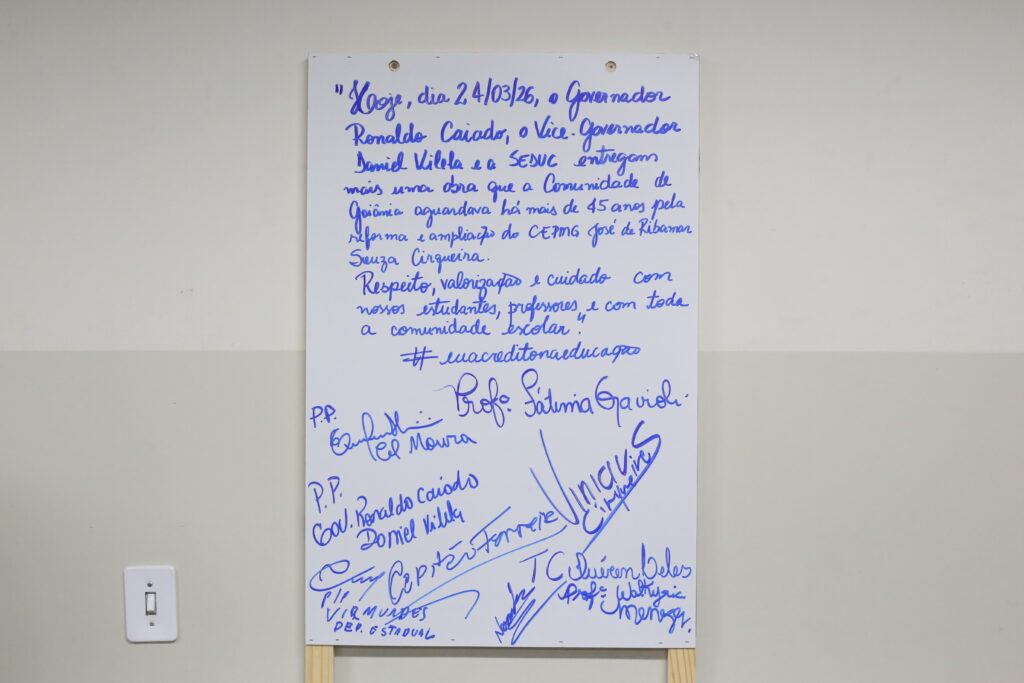 "Hooje, dia 24/03/26, o Governador
Ronaldo Caiado, o Vice-Governador
Daniel Vilela e a SEDUC entregam
mais uma obra que a Comunidade de
Goiânia aguardava há mais de 45 anos pela
reforma e ampliação do CEPMG José de Ribamar
Souza Cirqueira.
Respeito, valorização e cuidado com
nossos estudantes, professores, e com toda
a comunidade escolar".
#euacreditonaeducação
Profª. Fátima Gavioli.
P.P.
Cel Moura
P.P.
Gov. Ronaldo Caiado
Daniel Vilela
Vinicius
Cirqueira
Capitão Ferreira
P/P
VIRMUNDES
DEP. ESTADUAL
TC
Profª. Walkyria
Menezes